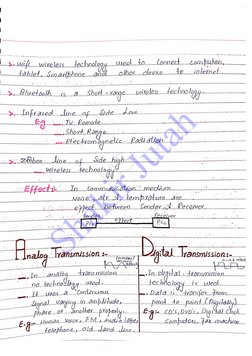 > Wifi wireless technology used to connect computer,
tablet, Smartphone and other device to internet
> Bluetooth is a short-range wireless technology.
> Infrared line of Side Low
Eg Tv Remote.
Short Range.
Electromagnetic Radiation
> line of Side high
Wireless technology
Effect:- In communication medium
Noise air & temperature are
effect between Sender & Receiver.
Sender Effect Receiver
Analog
Transmission:-
In analog transmission
no technology used.
It uses a continuous
Signal varying in amplitude,
phase or another property.
E.g- Human Voice, FM, audio tapes
telephone, old land line.
Digital
Transmission:-
In digital transmission
technology is used.
Data is transfer from
point to point (Digitally)
E.g:- CD's, DVD's, Digital clock
Computer, Fax machine
Shakir Jutah